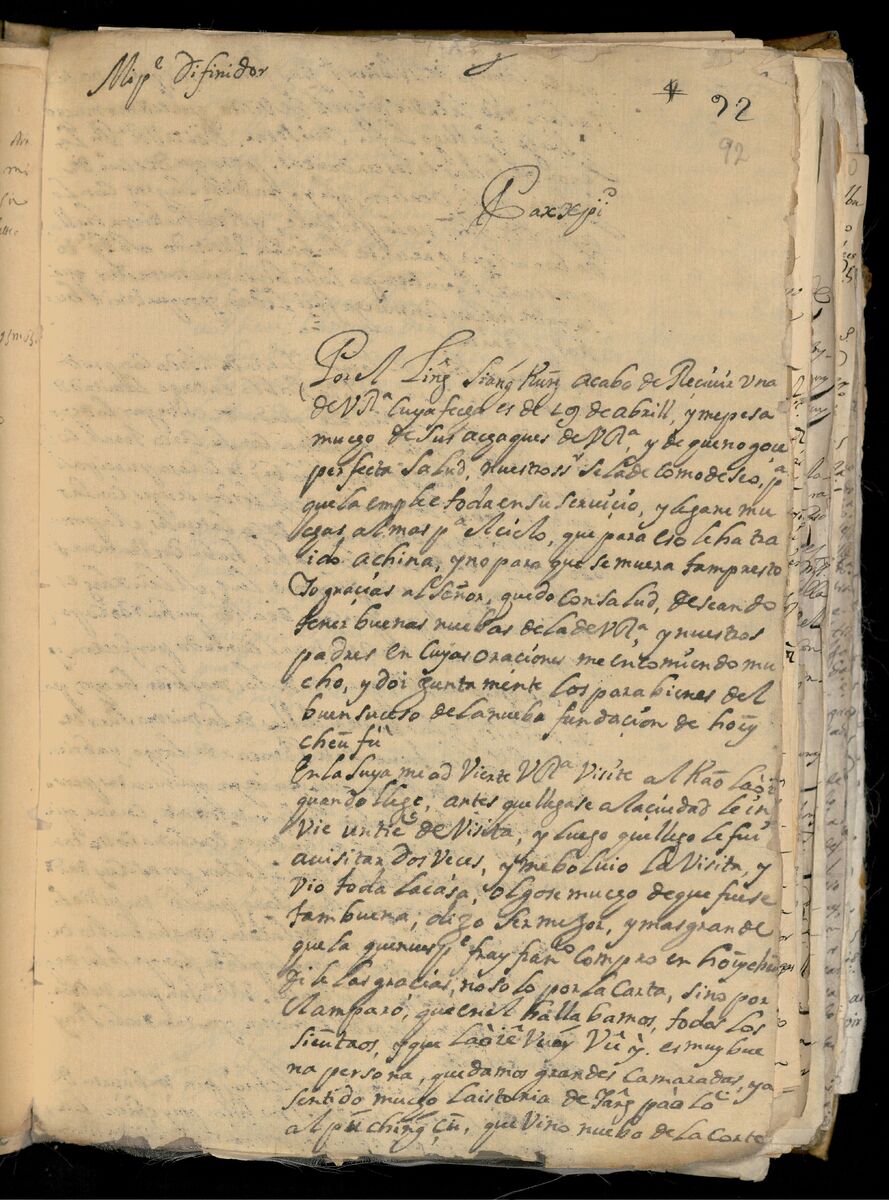 Mi pe Difinidor
92
92
Pax xpi
Por el Ling Siáng Kung acabo de Reciuir Una
de VRa cuya fecga es de 29 de abrill, y me pesa
muego de sus acgaques de VRa y de que no goce
perfecta salud, nuestro sr se la de como deseo, pa
que la emplee toda en su seruicio, y llegare mu
egas almas pa el cielo, que para eso le ha tra
ido a china, y no para que se muera tam presto
Yo gracias al Señor, quedo con salud, deseando
tener buenas nuebas de la de VRa y nuestros
padres en cuyas oraciones me encomiendo mu
cho, y doi guntamente los parabienes del
buen suceso de la nueba fundacion de hoey
cheū fù
En la suya me ad Vierte VRa Visite al Kao laò
quando llege, antes que llegase a la ciudad le in
Vie un tie de Visita, y luego que llego le fui
a uisitar dos Veces, y me boluio la Visita, y
Vio toda la casa, olgose muego de que fuese
tam buena, digo ser megor, y mas grande
que la que nro pe fray franco compro en hoeycheu
Di le las gracias, no solo por la carta, sino por
el amparo, que en el hallabamos, todos los
, y que laò Vuây es muy bue
na persona, quedamos grandes camaradas, ya
sentido muego la istoria de Iâng paò
al pú chíng , que Vino nuebo de la corte